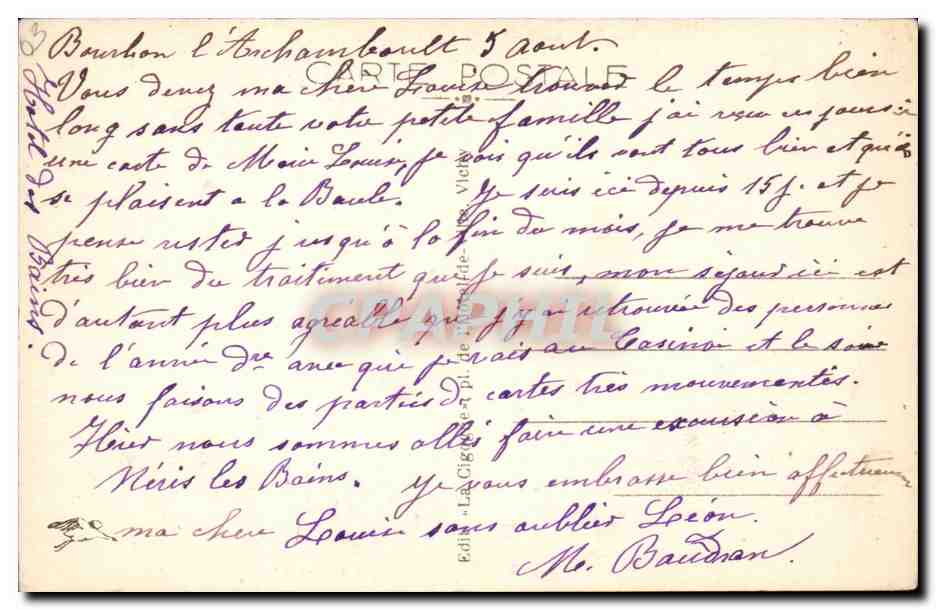 Bourbon l'Archambault 5 Aout.
CARTE POSTALE
Vous devez ma chère Louise trouver le temps bien
long sans toute votre petite famille j'ai reçu ces jours ci
une carte de Marie Louise, je vois qu'ils vont tous bien et qu'ils
se plaisent a la Baule. Je suis ici depuis 15 j. et je
pense rester jusqu'à la fin du mois, je me trouve
très bien du traitement que je suis, mon séjour ici est
d'autant plus agréable que j'y ai retrouvée des personnes
de l'année dre avec qui je vais au Casino et le soir
nous faisons des parties de cartes très mouvementés.
Hier nous sommes allés faire une excusion à
Néris les Bains. Je vous embrasse bien affectueusement
ma chere Louise sans oublier Léon.
M. Baudran.
Hotel des Bains.
03
Edit. «La Cigogne» 7 pl. de l'Hôtel-de-Ville Vichy
CPAPHIL